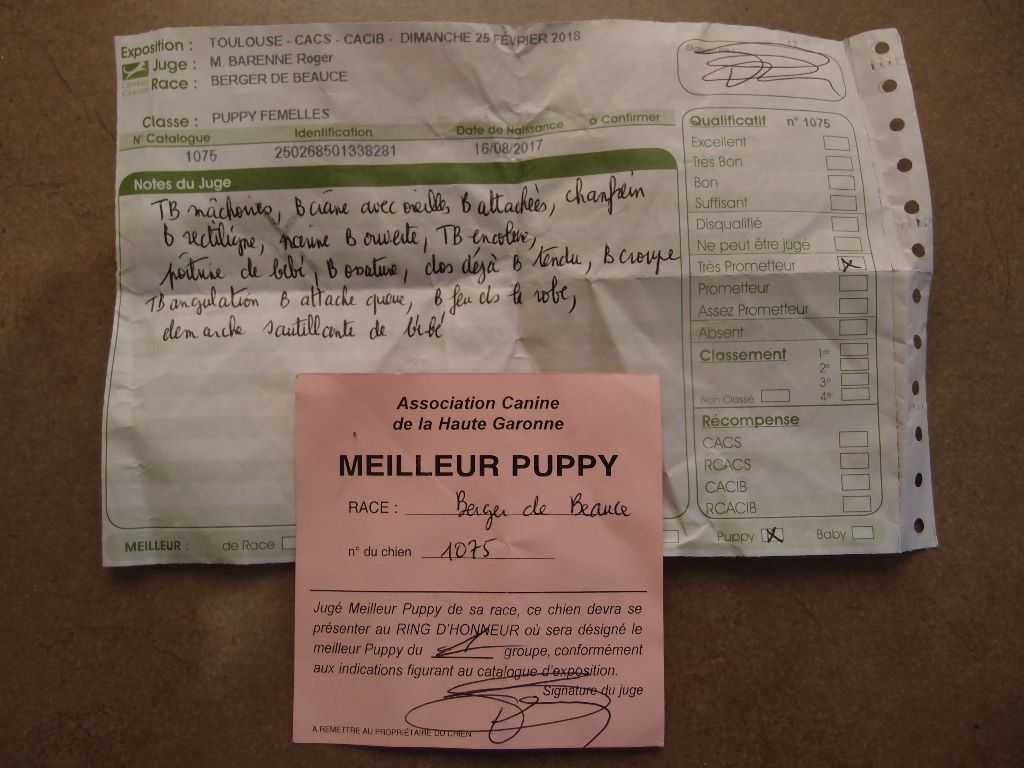 Exposition : TOULOUSE - CACS - CACIB - DIMANCHE 25 FÉVRIER 2018
Juge : M. BARENNE Roger
Race : BERGER DE BEAUCE
CENTRALE CANINE
Signature :
Classe : PUPPY FEMELLES
N° Catalogue Identification Date de Naissance à Confirmer
1075 250268501338281 16/08/2017
Notes du Juge
TB mâchoires, B crâne avec oreilles B attachées, chanfrein
B rectiligne, narine B ouverte, TB encolure,
poitrine de bébé, B ossature, dos déjà B tendu, B croupe
TB angulation B attache queue, B feu ds la robe,
demarche sautillante de bébé
Qualificatif n° 1075
Excellent
Très Bon
Bon
Suffisant
Disqualifié
Ne peut être jugé
Très Prometteur X
Prometteur
Assez Prometteur
Absent
Classement 1er
2e
3e
Non Classé 4e
Récompense
CACS
RCACS
CACIB
RCACIB
MEILLEUR : de Race Puppy X Baby
Association Canine
de la Haute Garonne
MEILLEUR PUPPY
RACE : Berger de Beauce
n° du chien 1075
Jugé Meilleur Puppy de sa race, ce chien devra se
présenter au RING D'HONNEUR où sera désigné le
meilleur Puppy du groupe, conformément
aux indications figurant au catalogue d'exposition.
Signature du juge
A REMETTRE AU PROPRIÉTAIRE DU CHIEN